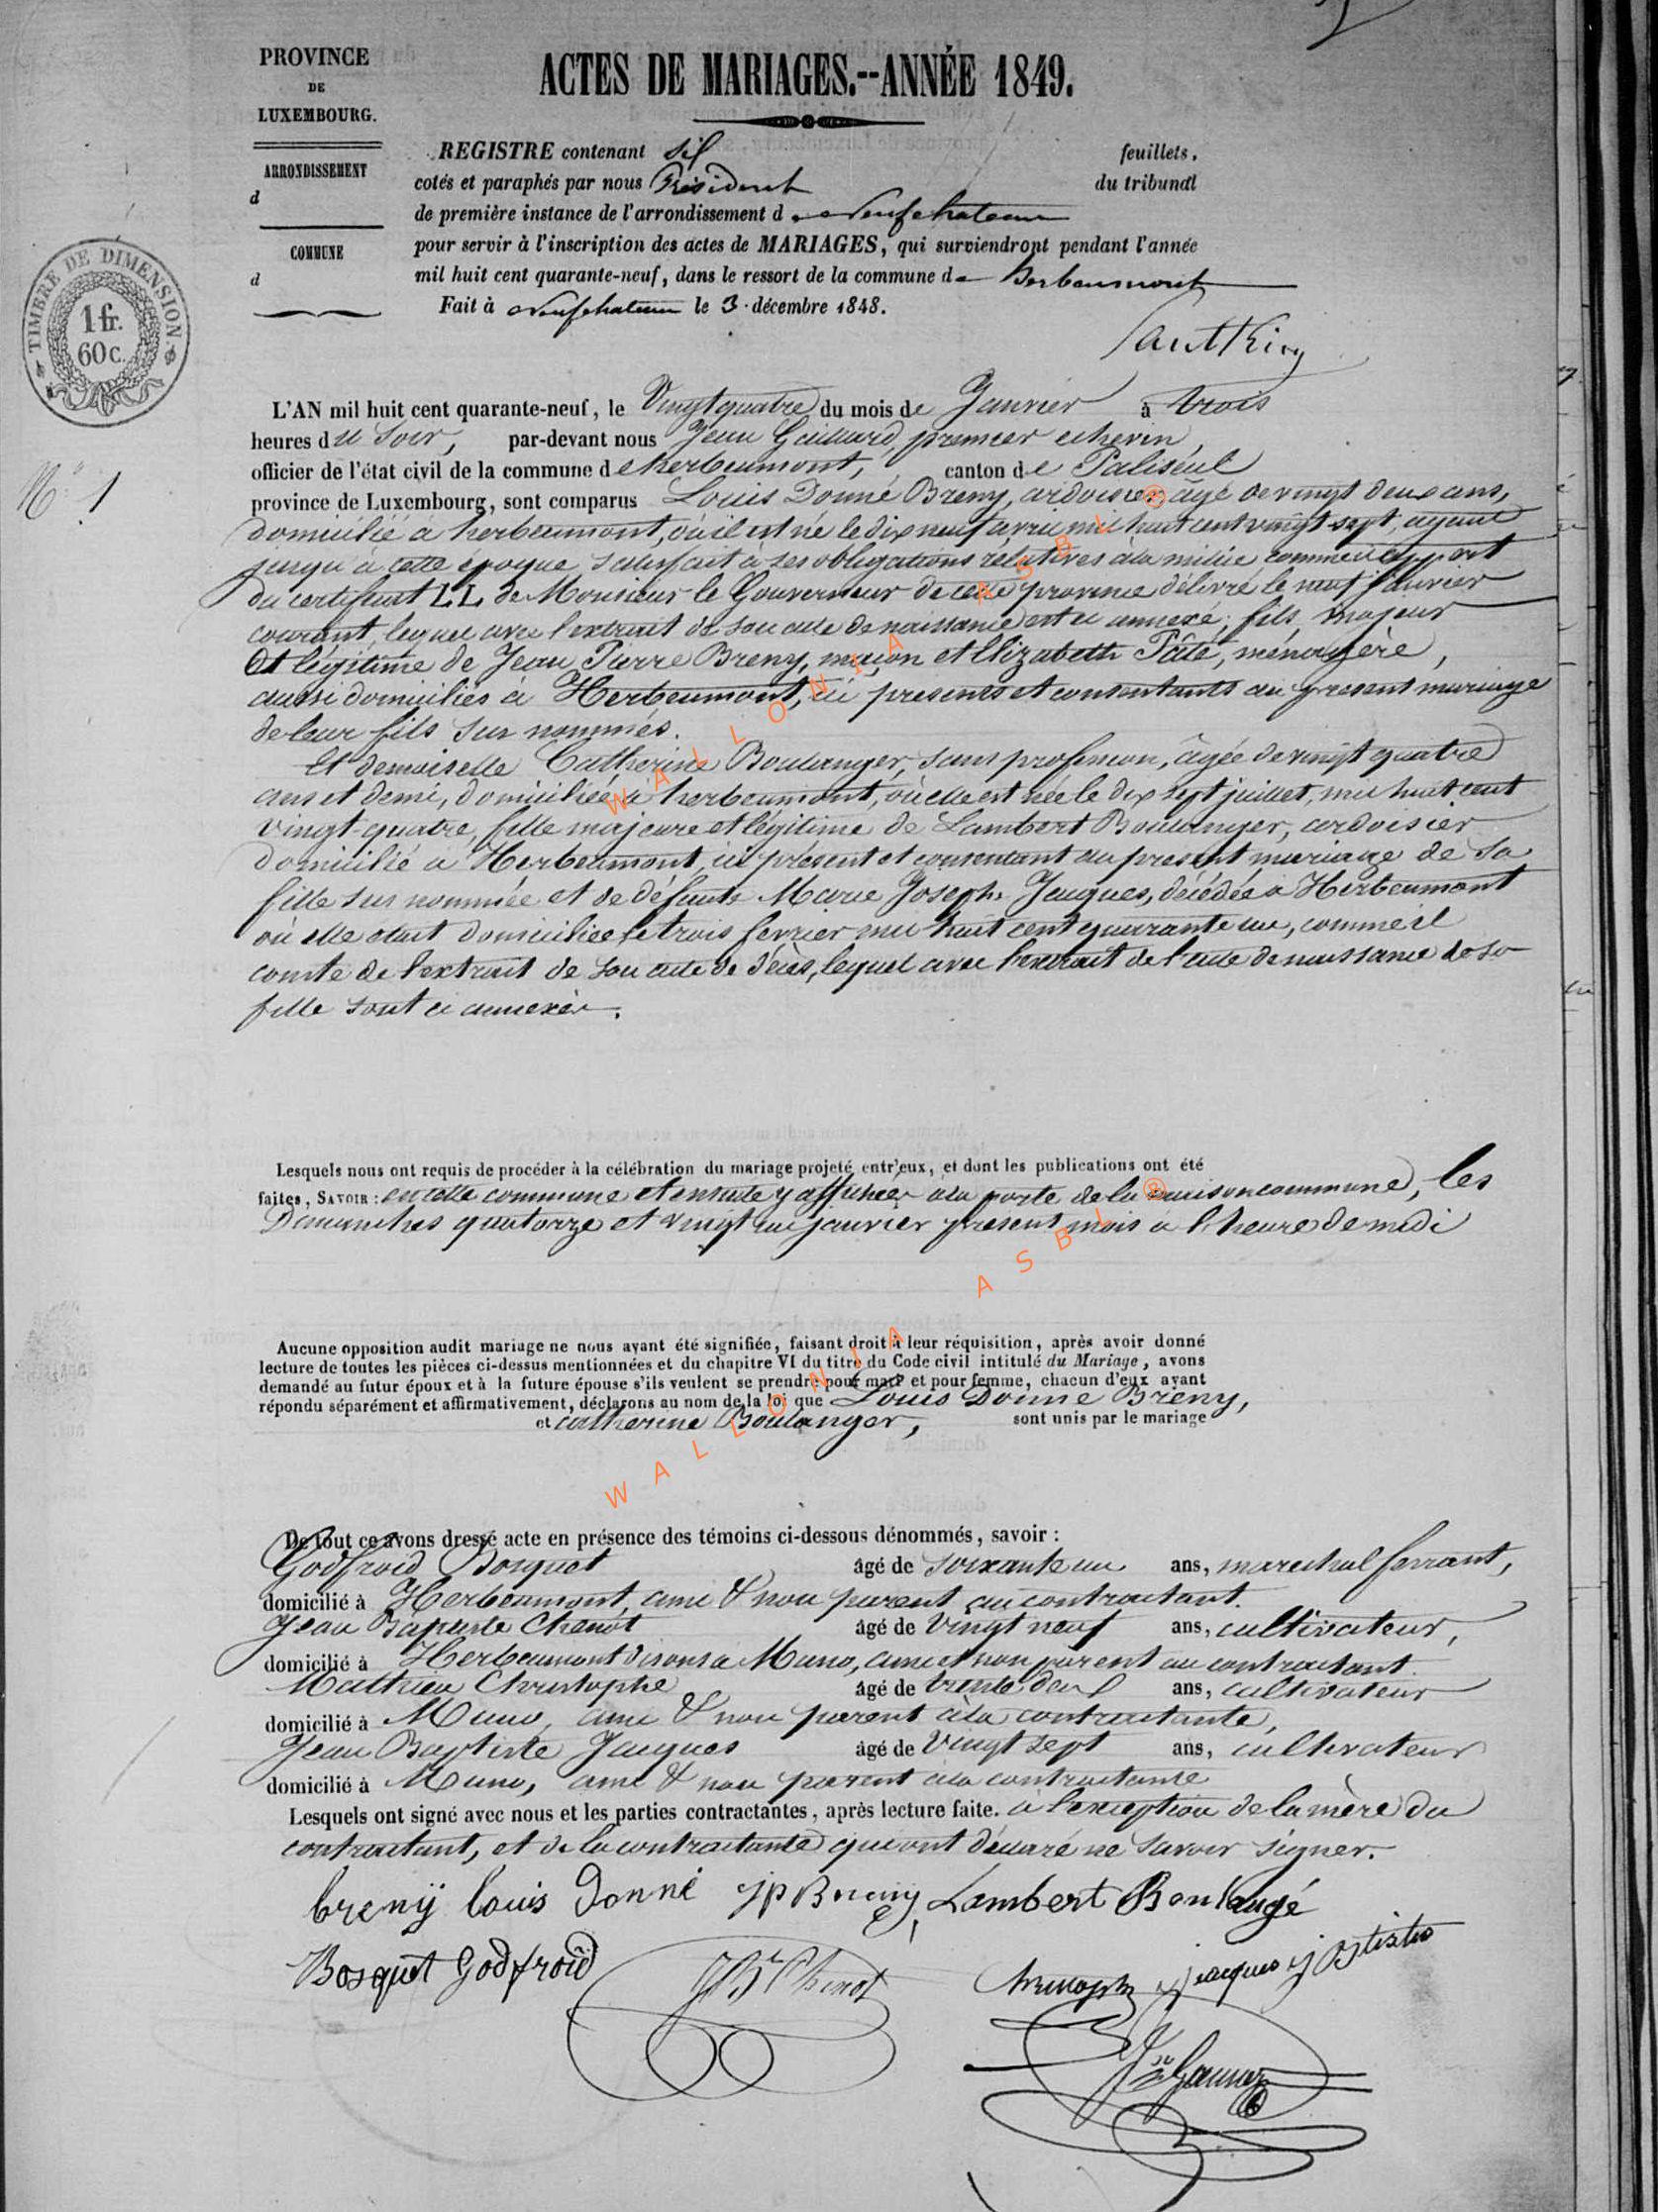 PROVINCE
DE
LUXEMBOURG.
ARRONDISSEMENT
d
COMMUNE
d
TIMBRE DE DIMENSION
1 fr.
60 c.
N° 1
ACTES DE MARIAGES.--ANNÉE 1849.
REGISTRE contenant six feuillets,
cotés et paraphés par nous Président du tribunal
de première instance de l'arrondissement d Neufchateau
pour servir à l'inscription des actes de MARIAGES, qui surviendront pendant l'année
mil huit cent quarante-neuf, dans le ressort de la commune d herbeumont
Fait à neufchateau le 3 décembre 1848.
L'AN mil huit cent quarante-neuf, le Vingt quatre du mois de Janvier à trois
heures du soir, par-devant nous Jean Gaillard, premier echevin,
officier de l'état civil de la commune de herbeumont, canton de Paliseul
province de Luxembourg, sont comparus Louis Donné Breny, ardoisier, âgé de vingt deux ans,
domicilié a herbeumont, où il est né le dix neuf avril mil huit cent vingt sept, ayant
jusqu'à cette époque satisfait à ses obligations relatives à la milice comme il appert
du certificat LL de Monsieur le Gouverneur de cette province délivré le neuf Janvier
courant, lequel avec l'extrait de son acte de naissance est ci annexé; fils majeur
et légitime de Jean Pierre Breny, maçon et Elizabeth Pâté, ménagère,
aussi domiciliés à Herbeumont, ici presents et consentants au present mariage
de leur fils sus nommés.
Et demoiselle Catherine Boulanger, sans profession, âgée de vingt quatre
ans et demi, domiciliée à herbeumont, où elle est née le dix sept juillet, mil huit cent
vingt-quatre, fille majeure et légitime de Lambert Boulanger, ardoisier
domicilié a Herbeumont, ici présent et consentant au present mariage de sa
fille sus nommée et de défunte Marie Joseph Jacques, décédée a Herbeumont
où elle etait domiciliée le trois fevrier mil huit cent quarante un, comme il
conste de l'extrait de son acte de décès, lequel avec l'extrait de l'acte de naissance de sa
fille sont ci annexés.
Lesquels nous ont requis de procéder à la célébration du mariage projeté entr'eux, et dont les publications ont été
faites, SAVOIR: en cette commune et ensuite y affichées à la porte de la maison commune, les
Dimanches quatorze et vingt un janvier present mois à l'heure de midi
Aucune opposition audit mariage ne nous ayant été signifiée, faisant droit à leur réquisition, après avoir donné
lecture de toutes les pièces ci-dessus mentionnées et du chapitre VI du titre du Code civil intitulé du Mariage, avons
demandé au futur époux et à la future épouse s'ils veulent se prendre pour mari et pour femme, chacun d'eux ayant
répondu séparément et affirmativement, déclarons au nom de la loi que Louis Donne Breny,
et catherine Boulanger, sont unis par le mariage
De tout ce avons dressé acte en présence des témoins ci-dessous dénommés, savoir :
Godfroid Bosquet âgé de soixante un ans, marechal ferrant,
domicilié à Herbeumont, ami & non parent au contractant.
Jean Baptiste Chenot âgé de vingt neuf ans, cultivateur,
domicilié à Herbeumont disons a Muno, ami et non parent au contractant.
Mathieu Christophe âgé de trente deux ans, cultivateur
domicilié à Muno, ami & non parent à la contractante,
Jean Baptiste Jacques âgé de Vingt sept ans, cultivateur
domicilié à Muno, ami & non parent à la contractante
Lesquels ont signé avec nous et les parties contractantes, après lecture faite. à l'exception de la mère du
contractant, et de la contractante qui ont déclaré ne savoir signer.
breny louis Donné JP Breny Lambert Boulangé
Bosquet Godfroid JBte Chenot Christophe jacques j Btiste
WALLONIA ASBL ®
WALLONIA ASBL ®